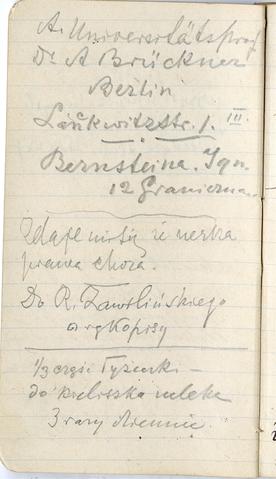 A. Universitätsprof
Dr A Brückner
Berlin
Lankwitzstr. 1. III.
Bernsteina. Ign.
12 Graniczna.
Zdaje mi się że nerka
prawa chora.
Do R. Zawilińskiego
o rękopisy
1/3 części łyżeczki –
do kieliszka mleka
3 razy dziennie.